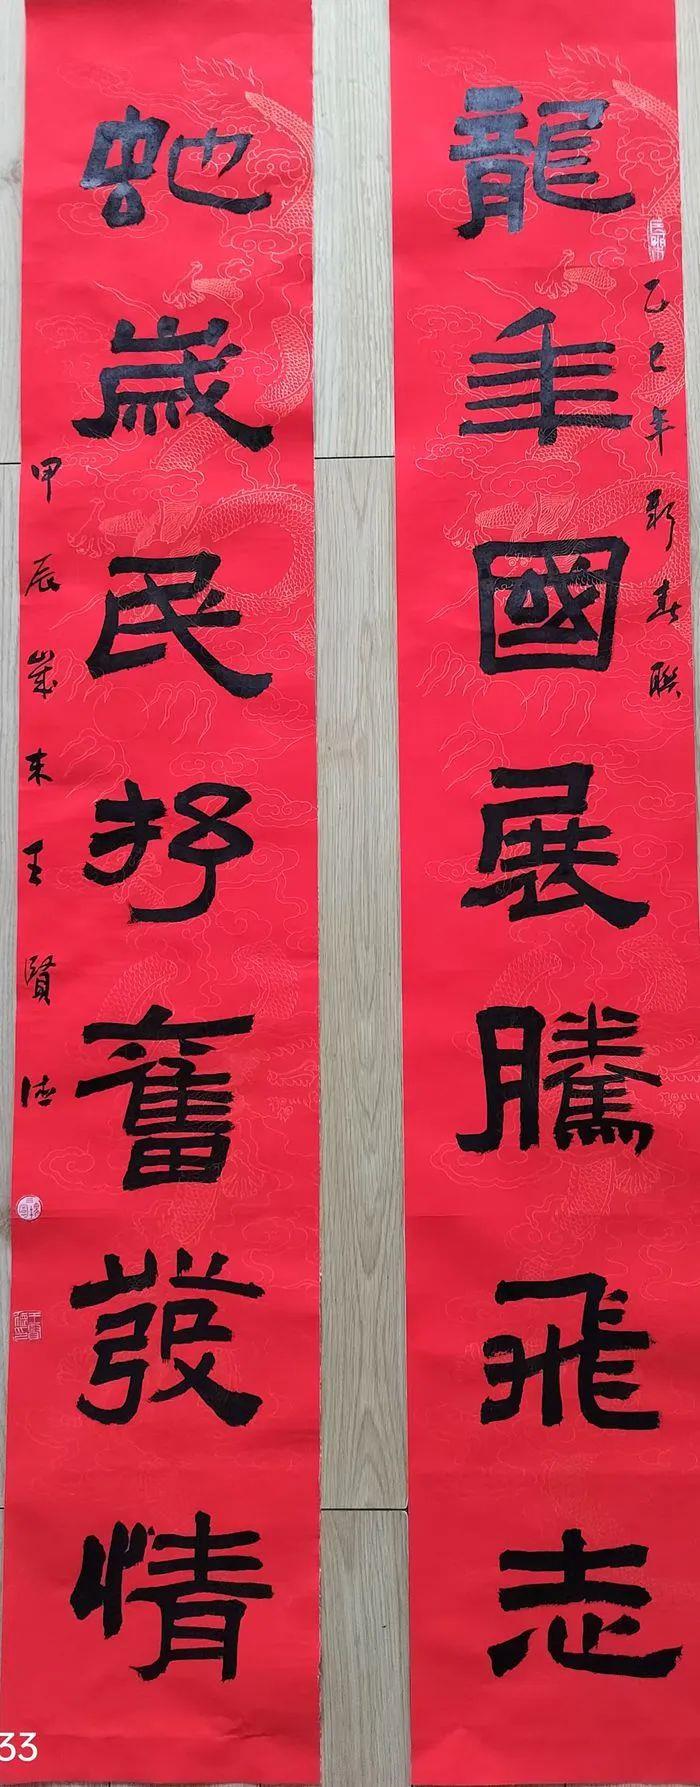 龍年國展騰飛志
乙巳年新春聯
蛇歲民抒奮發情
甲辰歲末王賢德
33